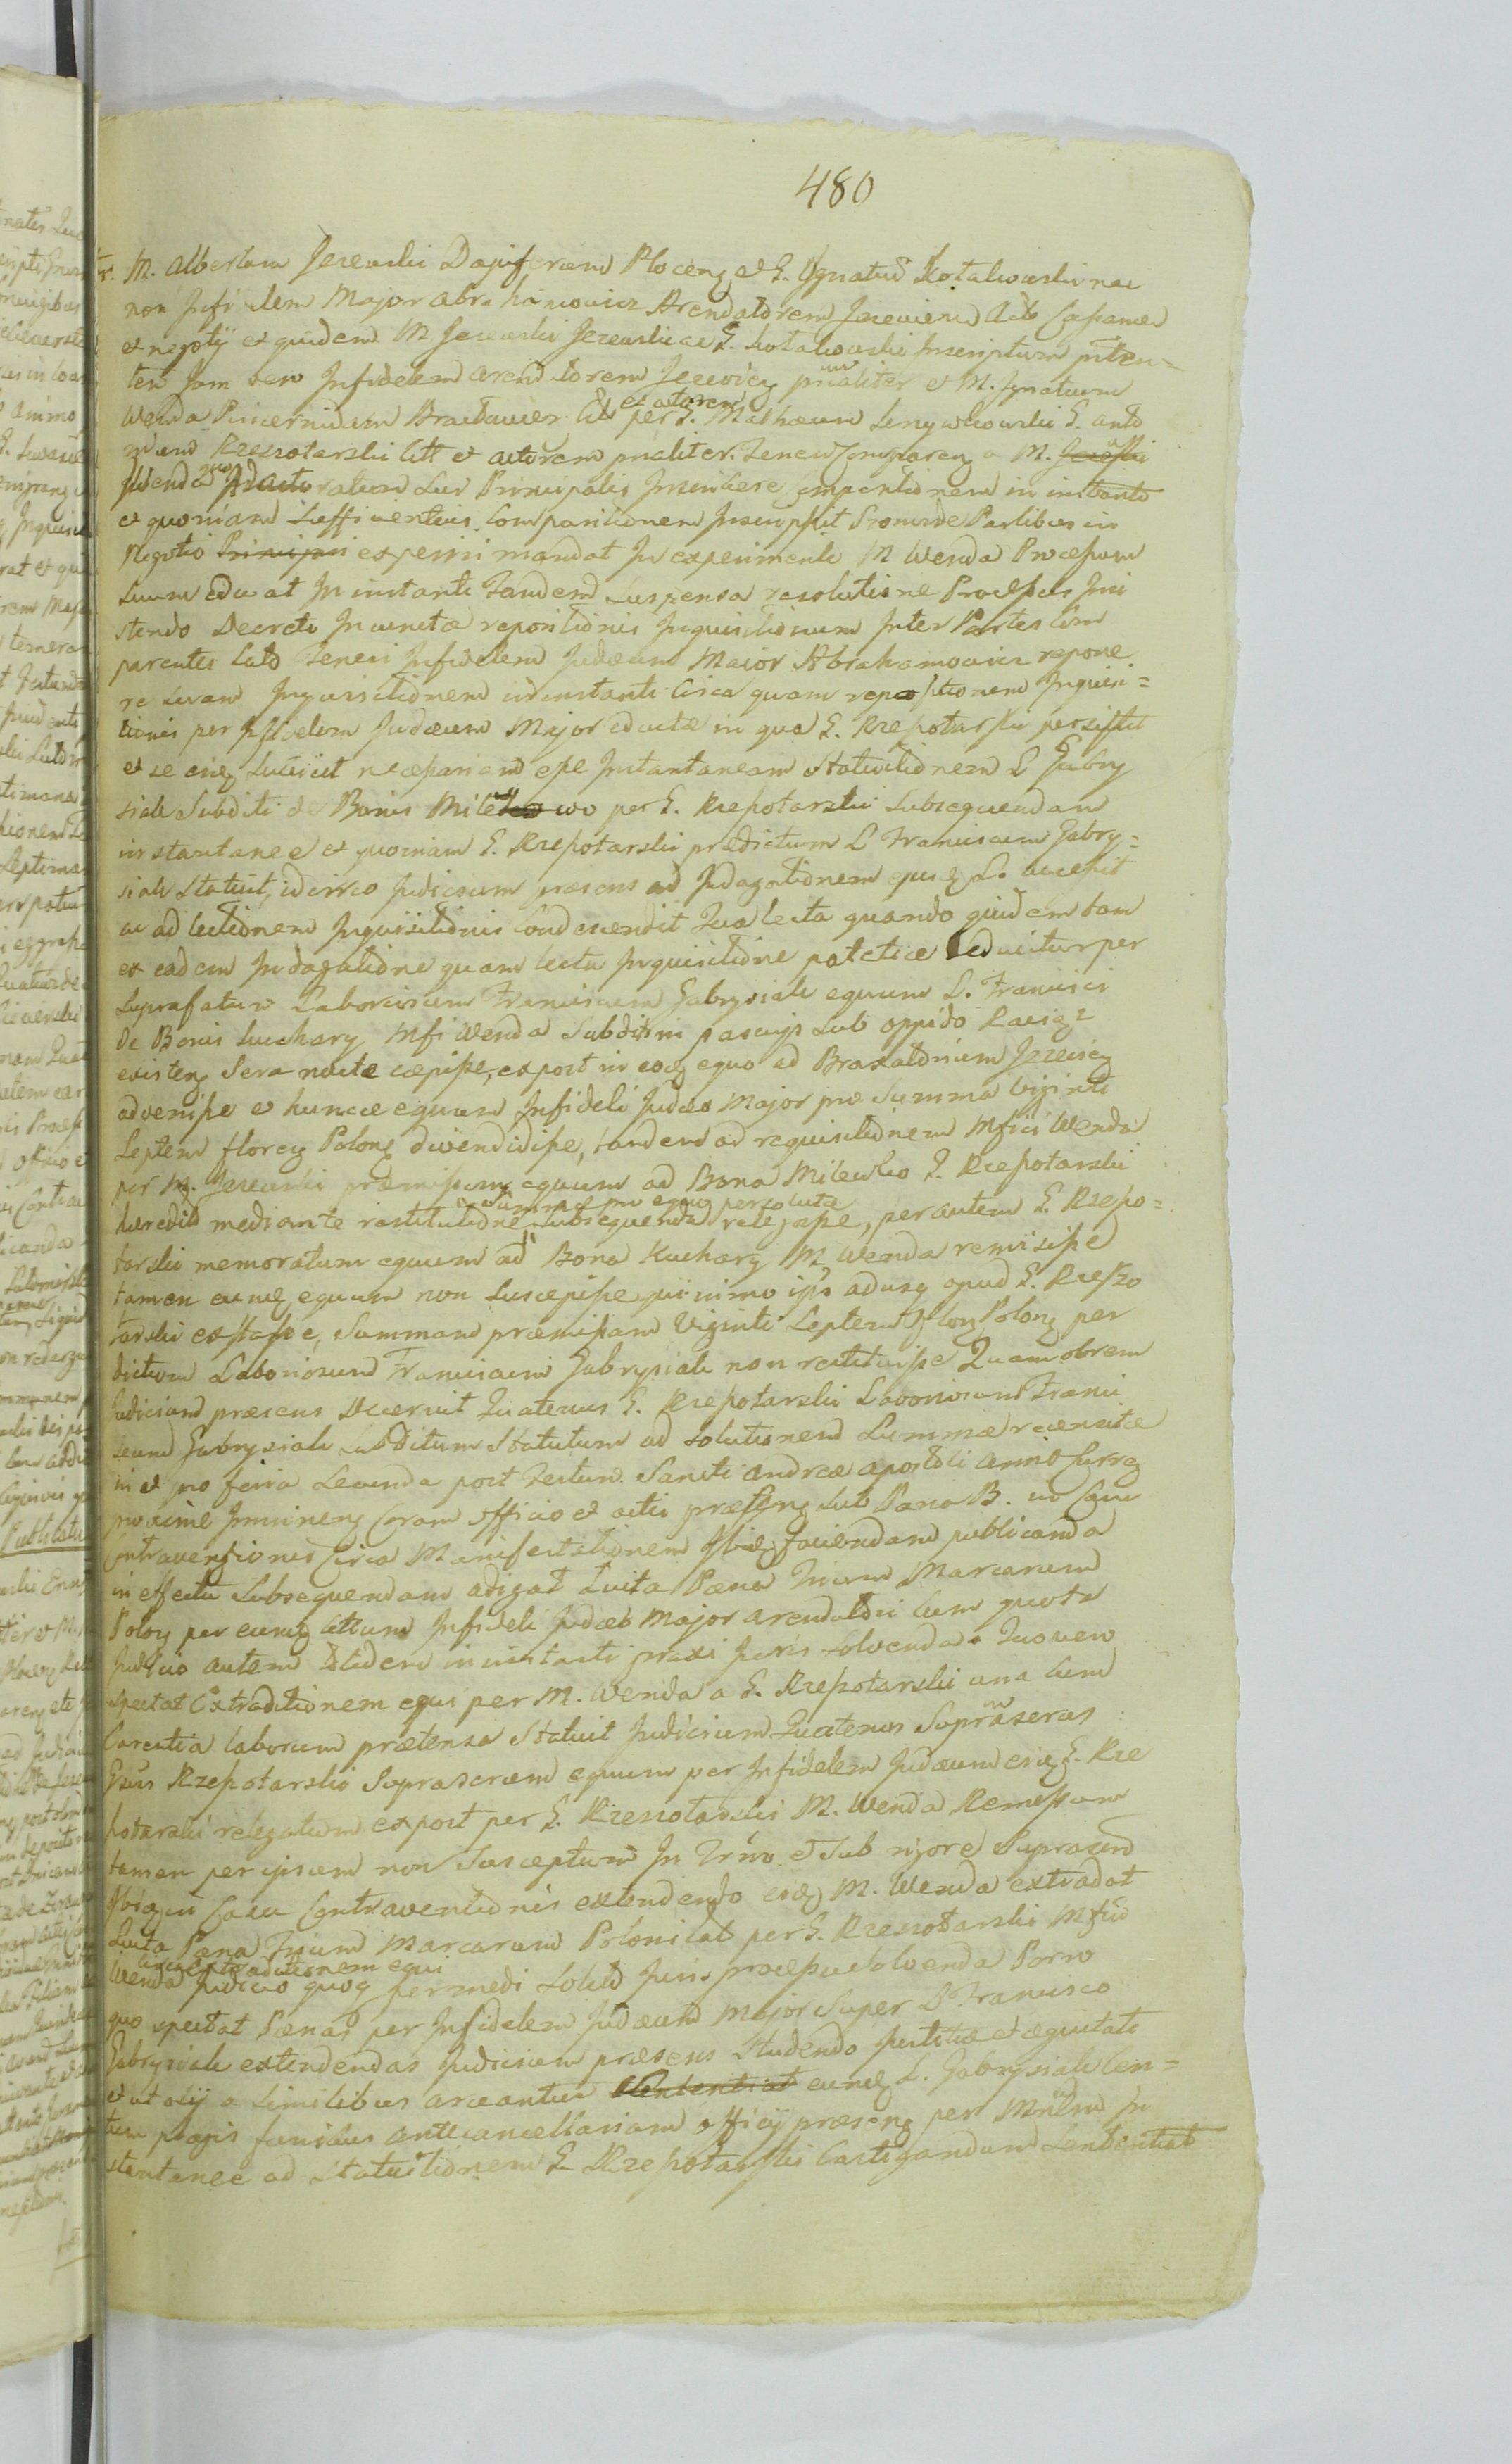 480
M. Albertum Jezewski Dapiferum Plocens et G. Ignatiu Kotakowski nec
non Infidelem Major Abrahamowicz Arendatorem Jezeviens Acto
et negotij et quidem M Jezewski Jezewski ac G. Kotakowski Inscriptum
ten Jam vero Infidelem arendatorem Jezevicz pnaliter et M. Ignatium
Wenda Pincernidam Braclavien Citt et actorem per G. Mathæum G. anto
nium Rzeszotarski Citt et actorem pnaliter. Tenen Comparen a M. Jezewski
Wenda quo ad actoratum sui Principalis Inscribere comparitionem in instanti
et quoniam sufficientius comparitionem Inscripsit Proinde Partibus in
Negotio Principali experiri mandat In experimento M Wenda Processum
suum educat In instanti Tandem suspensa resolutione Processus Insi
stendo Decreto In cunctæ repositionis Inquisitionum Inter Partes Com
parentes lato Teneri Infidelem Judæum Maior Abrahamowicz repone
re suam Inquisitionem in instanti Circa quam repositionem Inquisi=
tionis per Infidelem Judæum Major eductæ in qua G. Rzeszotarski persistit
et se eiusq sufficit necessariam esse Instantaneam Statuitionem L Gabry
siak Subditi de Bonis Milewo per G. Rzeszotarski subsequendam
instantanee et quoniam G. Rzeszotarski prædictum L Franciscum Gabry=
siak statuit, idcirco Judicium præsens ad Indagationem ejusq L. accessit
ac ad lectionem Inquisitionis condescendit Qua lecta quando quidem tam
ex eadem Indagatione quam lecta Inquisitione patetice educitur per
suprafatum Laboriosum Franciscum Gabrysiak equum L. Francisci
De Bonis Kuchary Mfi Wenda Subditi in pascuis sub oppido Raciąz
existens Sera nocte cæpisse, expost in eodq equo ad Braxatorium Jezeviens
advenisse et huncce equum Infideli Judæo Major pro Summa viginti
Septem florenos Polon divendidisse, tandem ad requisitionem Mfici Wenda
per M. Jezewski præmissum equum ad Bona Milewko G. Rzeszotarski
hæredis mediante restitutione summæ pro equo persolutæ subsequenda relegasse, per autem G. Rzeszo=
tarski memoratum equum ad Bona Kuchary M Wenda remisisse
tamen eumq equum non suscepisse quinimo ipso adusq apud G. Rzeszo
tarski exstasse, Summam præmissam Viginti Septem Flor Polon per
dictum Laboriosum Franciscum Gabrysiak non restituisse Quam obrem
Judicium præsens Decernit Quatenus G. Rzeszotarski Laboriosum Franci
scum Gabrysiak subditum Statutum ad solutionem Summæ recensitæ
in et pro feria secunda post Festum Sancti Andreæ apostoli anni Curren
proxime Imminen Coram officio et actis præsens Sub Pæna B. in Casu
Contraventionis Circa Manifestationem Ibiq faciendam publicanda
in effectu subsequendam adigat Luita Pæna Trium Marcarum
Polon per eumq Cittum Infideli Judæo Major arendatori cum quota
Judicio autem itidem in instanti praxi Juris solvenda. Quo vero
spectat Extraditionem equi per M. Wenda a G. Rzeszotarski una cum
Carentia laborum prætensa Statuit Judicium Quatenus Suprascrius
Gsus Rzeszotarski Suprascrum equum per Infidelem Judæum eiq G. Rze
szotarski relegatum expost per G. Rzeszotarski M. Wenda Remissum
tamen per ipsum non Susceptum In Trno et sub rigore Suprascro
Ibiq in Casu Contraventionis extendendo eiq M. Wenda extradat
Luita Pæna Trium Marcarum Polonical per G. Rzeszotarski Mfico
Wenda circa extraditionem equi Judicio quoq solito Juris processu solvenda Porro
quo spectat Pænas per Infidelem Judæum Major Super L Francisco
Gabrysiak extendendas Judicium præsens Studendo Justitiæ et æquitati
et ut alij a similibus arceantur Sententiat eumq L. Gabrysiak Cen=
tum plagis funibus ante cancellariam officij præsens per Mnlem In
stantanee ad Statuitionem G Rzeszotarski Castigandum Sententiat